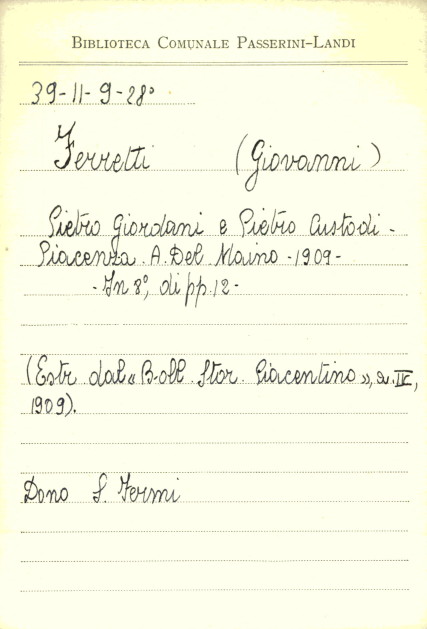 BIBLIOTECA COMUNALE PASSERINI-LANDI
39-11-9-28°
Ferretti (Giovanni)
Pietro Giordani e Pietro Custodi -
Piacenza. A. Del Maino - 1909 -
- In 8°, di pp. 12 -
(Estr. dal « Boll. Stor. Piacentino », a. IV,
1909).
Dono S. Fermi